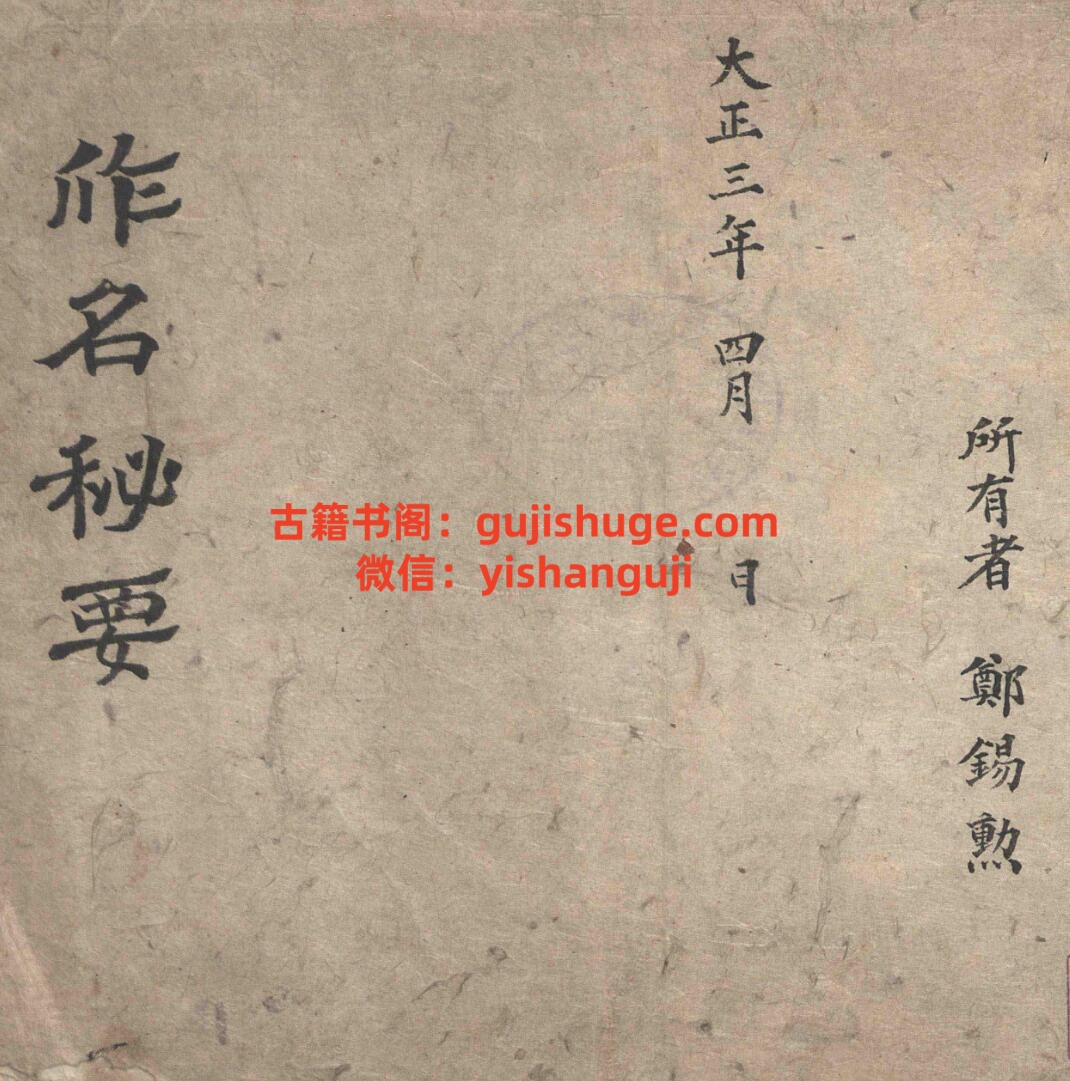 所有者 鄭錫勲
大正三年 四月 日
作名秘要
古籍书阁：gujishuge.com
微信：yishanguji